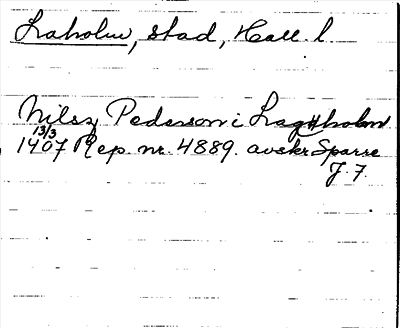 Laholm, stad, Hall. l.
Nilsz Pedersson i Lagholm
13/3
1407 Rep. nr. 4889. avskr Sparre
J. 7.